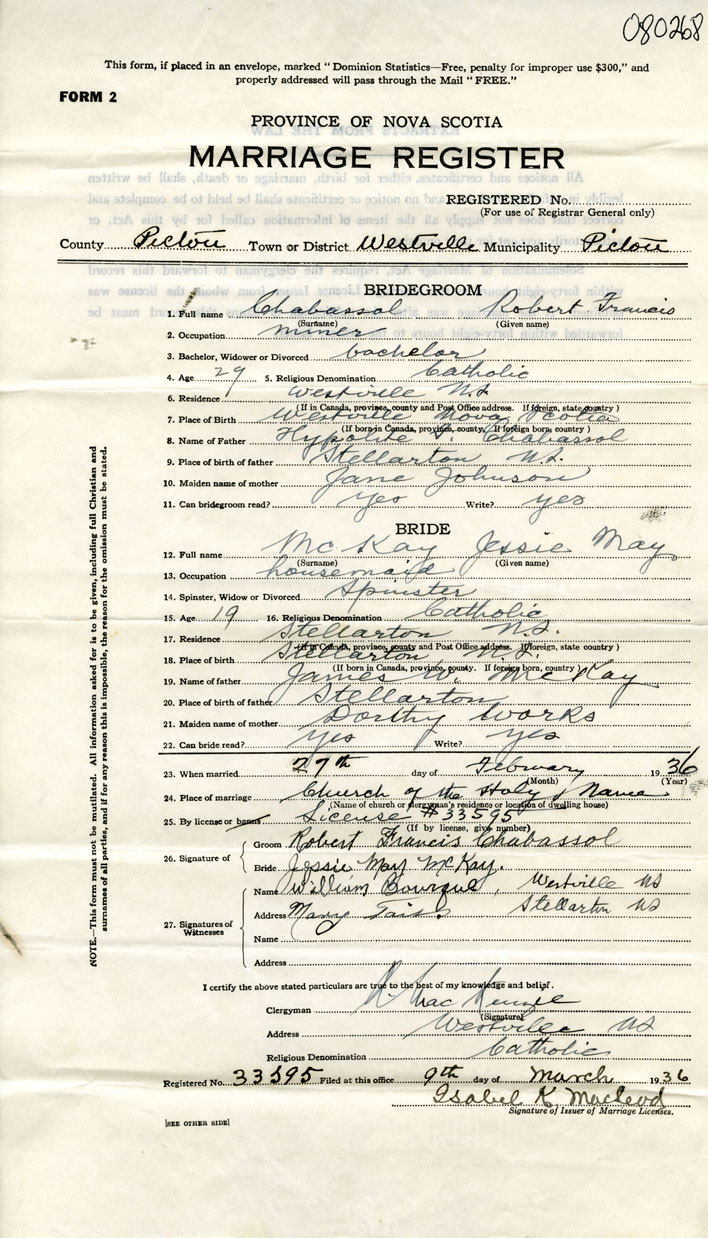 080268
This form, if placed in an envelope, marked "Dominion Statistics—Free, penalty for improper use $300," and
properly addressed will pass through the Mail "FREE."
FORM 2
PROVINCE OF NOVA SCOTIA
MARRIAGE REGISTER
REGISTERED No.
(For use of Registrar General only)
County Pictou Town or District Westville Municipality Pictou
BRIDEGROOM
1. Full name Chabassol Robert Francis
(Surname) (Given name)
2. Occupation miner
3. Bachelor, Widower or Divorced bachelor
4. Age 29 5. Religious Denomination Catholic
6. Residence Westville N.S.
(If in Canada, province, county and Post Office address. If foreign, state country)
7. Place of Birth Westville Nova Scotia
(If born in Canada, province, county. If foreign born, country)
8. Name of Father Hypolite F. Chabassol
9. Place of birth of father Stellarton N.S.
10. Maiden name of mother Jane Johnson
11. Can bridegroom read? yes Write? yes
BRIDE
12. Full name McKay Jessie May
(Surname) (Given name)
13. Occupation housemaid
14. Spinster, Widow or Divorced Spinster
15. Age 19 16. Religious Denomination Catholic
17. Residence Stellarton N.S.
(If in Canada, province, county and Post Office address. If foreign, state country)
18. Place of birth Stellarton N.S.
(If born in Canada, province, county. If foreign born, country)
19. Name of father James W. McKay
20. Place of birth of father Stellarton
21. Maiden name of mother Dorthy Works
22. Can bride read? yes Write? yes
23. When married 27th day of February 1936
(Month) (Year)
24. Place of marriage Church of the Holy Name
(Name of church or clergyman's residence or location of dwelling house)
25. By license or banns License #33595
(If by license, give number)
26. Signature of
Groom Robert Francis Chabassol
Bride Jessie May McKay.
27. Signatures of Witnesses
Name William Bourque, Westville NS
Address Mary Stellarton NS
Name
Address
I certify the above stated particulars are true to the best of my knowledge and belief.
Clergyman MacKenzie
(Signature)
Address Westville NS
Religious Denomination Catholic
Registered No. 33595 Filed at this office 9th day of March 1936
Isabel K Macleod
Signature of Issuer of Marriage Licenses.
[SEE OTHER SIDE]
NOTE.—This form must not be mutilated. All information asked for is to be given, including full Christian and
surnames of all parties, and if for any reason this is impossible, the reason for the omission must be stated.